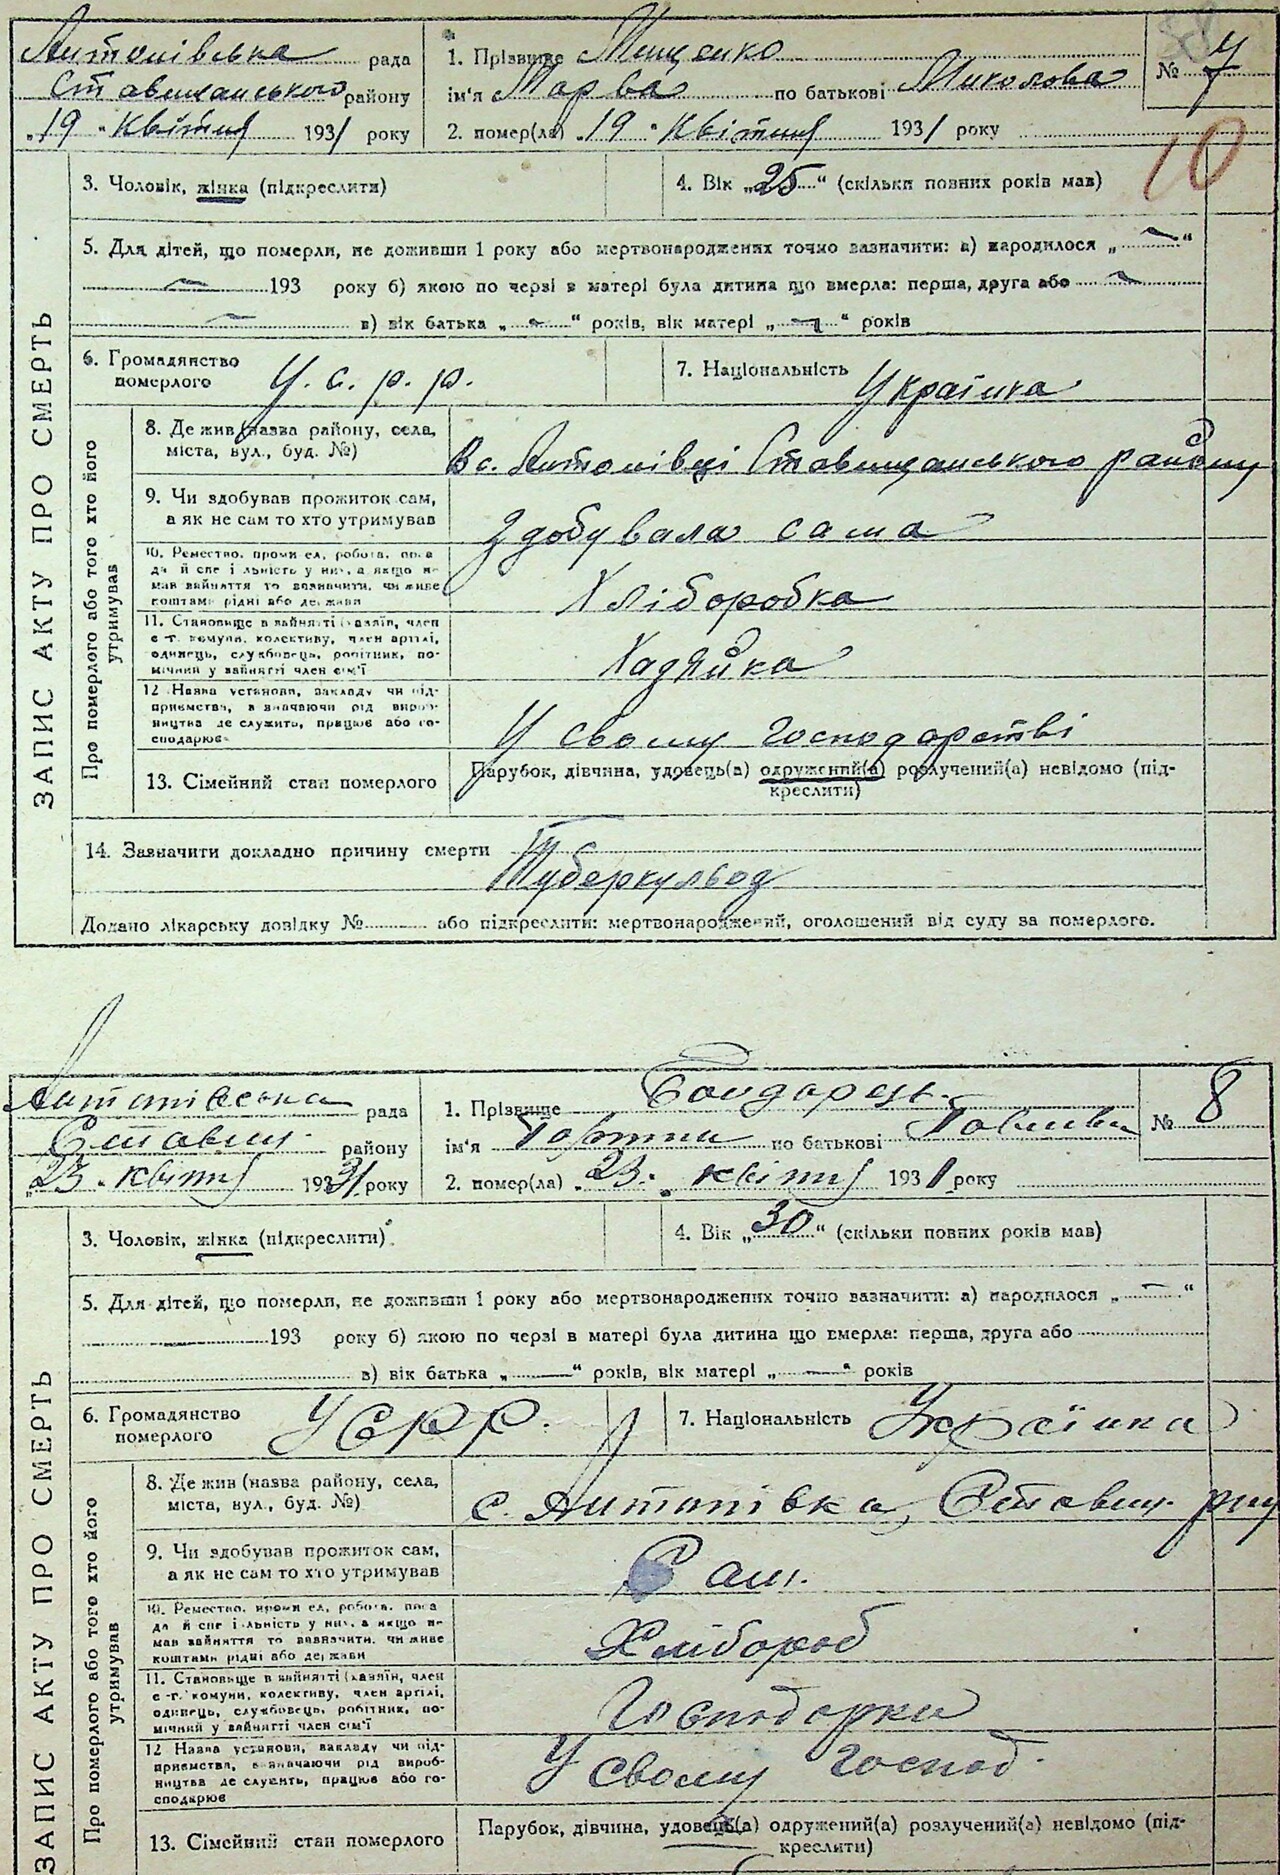 Антонівська рада
Ставищанського району
„19 " Квітня 1931 року
1. Прізвище Мищенко
ім'я Марва по батькові Миколова
2. помер(ла) „19 " Квітня 1931 року
№ 7
10
ЗАПИС АКТУ ПРО СМЕРТЬ
3. Чоловік, жінка (підкреслити)
4. Вік „25" (скільки повних років мав)
5. Для дітей, що померли, не доживши 1 року або мертвонароджених точно зазначити: а) народилося „ — "
— 193 року б) якою по черзі в матері була дитина що вмерла: перша, друга або —
— в) вік батька „ — " років, вік матері „ — " років
6. Громадянство
померлого У. с. р. р.
7. Національність Українка
Про померлого або того хто його
утримував
8. Де жив (назва району, села,
міста, вул., буд. №)
В с. Антонівці Ставищанського району
9. Чи здобував прожиток сам,
а як не сам то хто утримував
Здобувала сама
10. Ремество, промисел, робота, поса
да й спеціяльність у них, а якщо не
мав зайняття то зазначити, чи живе
коштами рідні або держави
Хліборобка
11. Становище в зайнятті (хазяїн, член
с.-г. комуни, колективу, член артілі,
одинець, службовець, робітник, по-
мічний у зайнятті член сім'ї
Хазяйка
12 Назва установи, закладу чи під-
приємства, зазначаючи рід вироб-
ництва де служить, працює або го-
сподарює
У своему господарстві
13. Сімейний стан померлого
Парубок, дівчина, удовець(а) одружений(а) розлучений(а) невідомо (під-
креслити)
14. Зазначити докладно причину смерти
Туберкульоз
Додано лікарську довідку № або підкреслити: мертвонароджений, оголошений від суду за померлого.
Антонівська рада
Ставищ. району
„23. квітня 1931 року
1. Прізвище Бондарець.
ім'я по батькові
2. помер(ла) „23." квітня 1931 року
№ 8
ЗАПИС АКТУ ПРО СМЕРТЬ
3. Чоловік, жінка (підкреслити)
4. Вік „30" (скільки повних років мав)
5. Для дітей, що померли, не доживши 1 року або мертвонароджених точно зазначити: а) народилося „ — "
193 року б) якою по черзі в матері була дитина що вмерла: перша, друга або
в) вік батька „ — " років, вік матері „ — " років
6. Громадянство
померлого УСРР.
7. Національність Українка
Про померлого або того хто його
утримував
8. Де жив (назва району, села,
міста, вул., буд. №)
с. Антонівка, Ставищ. рну
9. Чи здобував прожиток сам,
а як не сам то хто утримував
Сам.
10. Ремество, промисел, робота, поса
да й спеціяльність у них, а якщо не
мав зайняття то зазначити, чи живе
коштами рідні або держави
Хлібороб
11. Становище в зайнятті (хазяїн, член
с.-г. комуни, колективу, член артілі,
одинець, службовець, робітник, по-
мічний у зайнятті член сім'ї
Господарка
12 Назва установи, закладу чи під-
приємства, зазначаючи рід вироб-
ництва де служить, працює або го-
сподарює
У своему господ.
13. Сімейний стан померлого
Парубок, дівчина, удовець(а) одружений(а) розлучений(а) невідомо (під-
креслити)